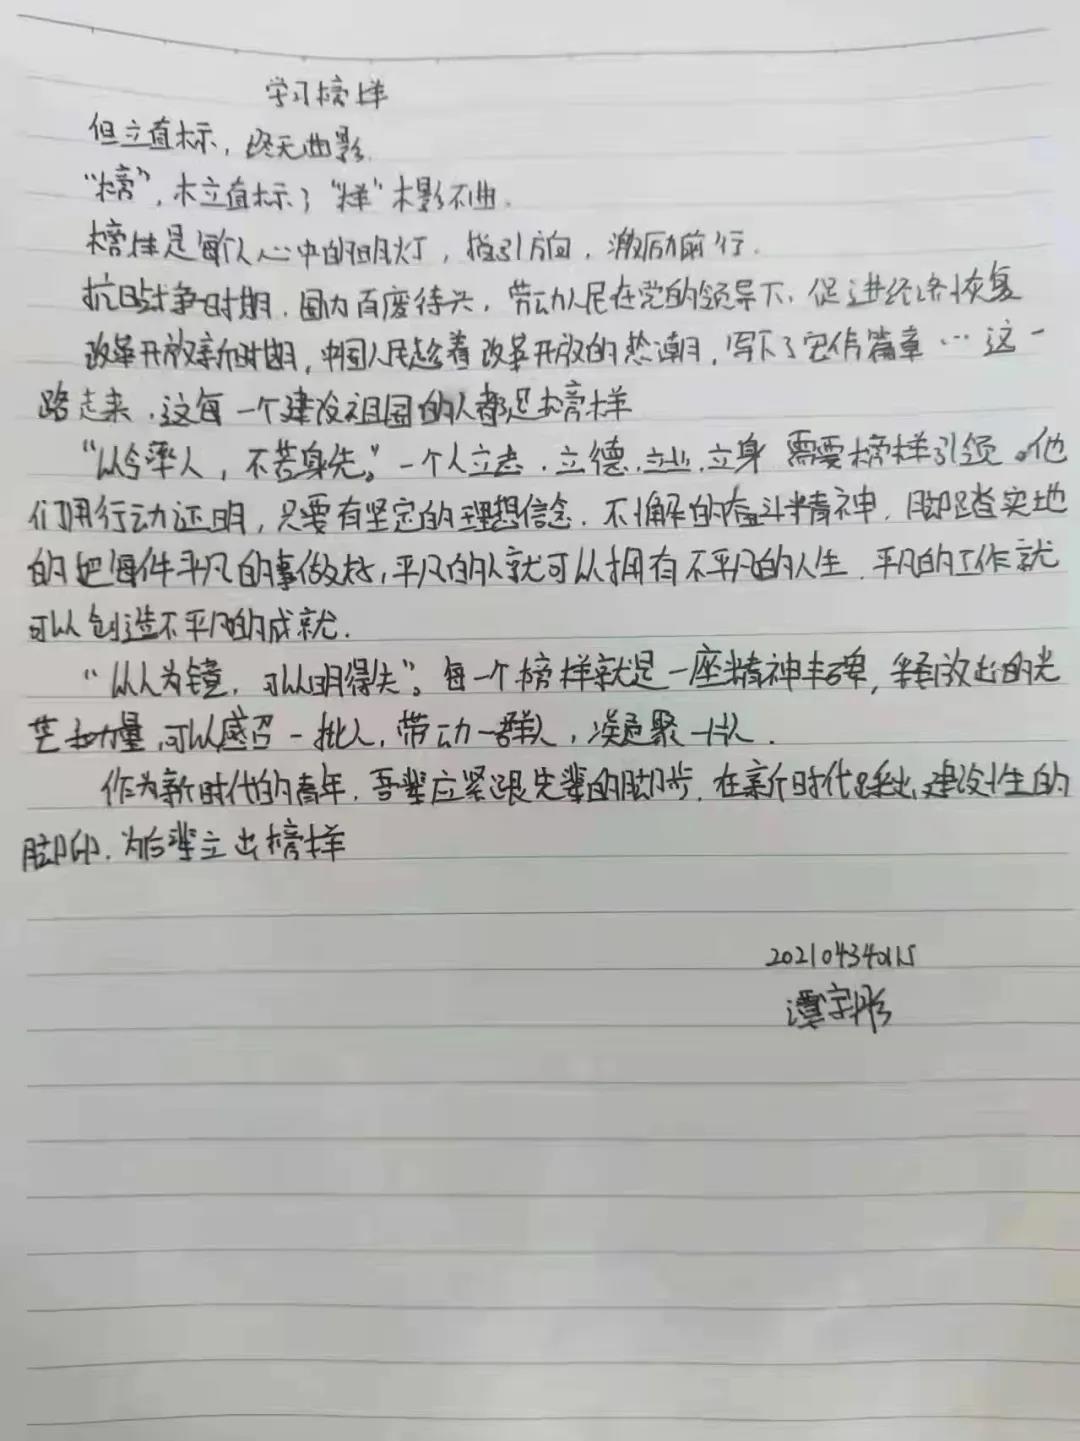 学习榜样
但立直标，终无曲影
“榜”，木立直标；“样”木影不曲.
榜样是每个人心中的明灯，指引方向，激励前行.
抗日战争时期，国内百废待兴，劳动人民在党的领导下，促进经济恢复
改革开放新时期，中国人民趁着改革开放的热潮，写下了宏伟篇章…这一
路走来，这每一个建设祖国的人都是榜样
“以令率人，不若身先。”一个人立志，立德，立业，立身 需要榜样引领。他
们用行动证明，只要有坚定的理想信念，不懈的奋斗精神，脚踏实地
的把每件平凡的事做好，平凡的人就可以拥有不平凡的人生，平凡的工作就
可以创造不平凡的成就.
“以人为镜，可以明得失”。每一个榜样就是一座精神丰碑，释放出的光
芒和力量，可以感召一批人，带动一群人，凝聚一队人.
作为新时代的青年，吾辈应紧跟先辈的脚步，在新时代踩出建设性的
脚印，为后辈立出榜样
20210434015
谭宇彤